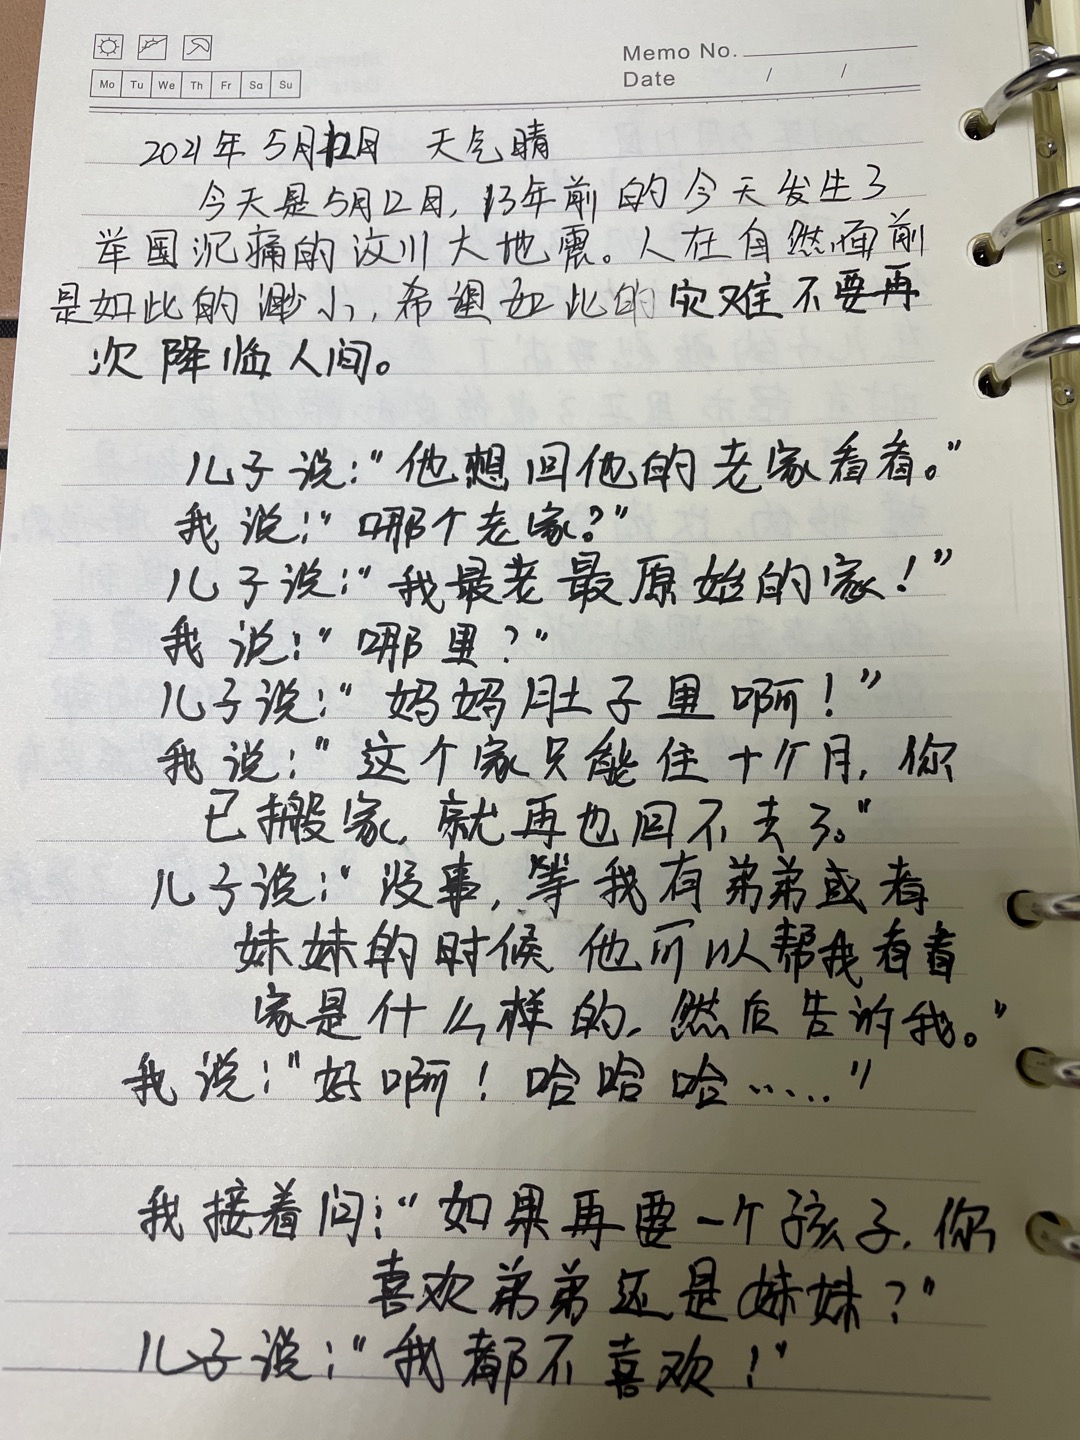 Memo No.
Mo Tu We Th Fr Sa Su
Date / /
2021年5月12日 天气晴
今天是5月12日，13年前的今天发生了
举国沉痛的汶川大地震。人在自然面前
是如此的渺小，希望如此的灾难不要再
次降临人间。
儿子说：“他想回他的老家看看。”
我说：“哪个老家？”
儿子说：“我最老最原始的家！”
我说：“哪里？”
儿子说：“妈妈肚子里啊！”
我说：“这个家只能住十个月，你
已搬家，就再也回不去了。”
儿子说：“没事，等我有弟弟或者
妹妹的时候他可以帮我看看
家是什么样的，然后告诉我。”
我说：“好啊！哈哈哈……”
我接着问：“如果再要一个孩子，你
喜欢弟弟还是妹妹？”
儿子说：“我都不喜欢！”